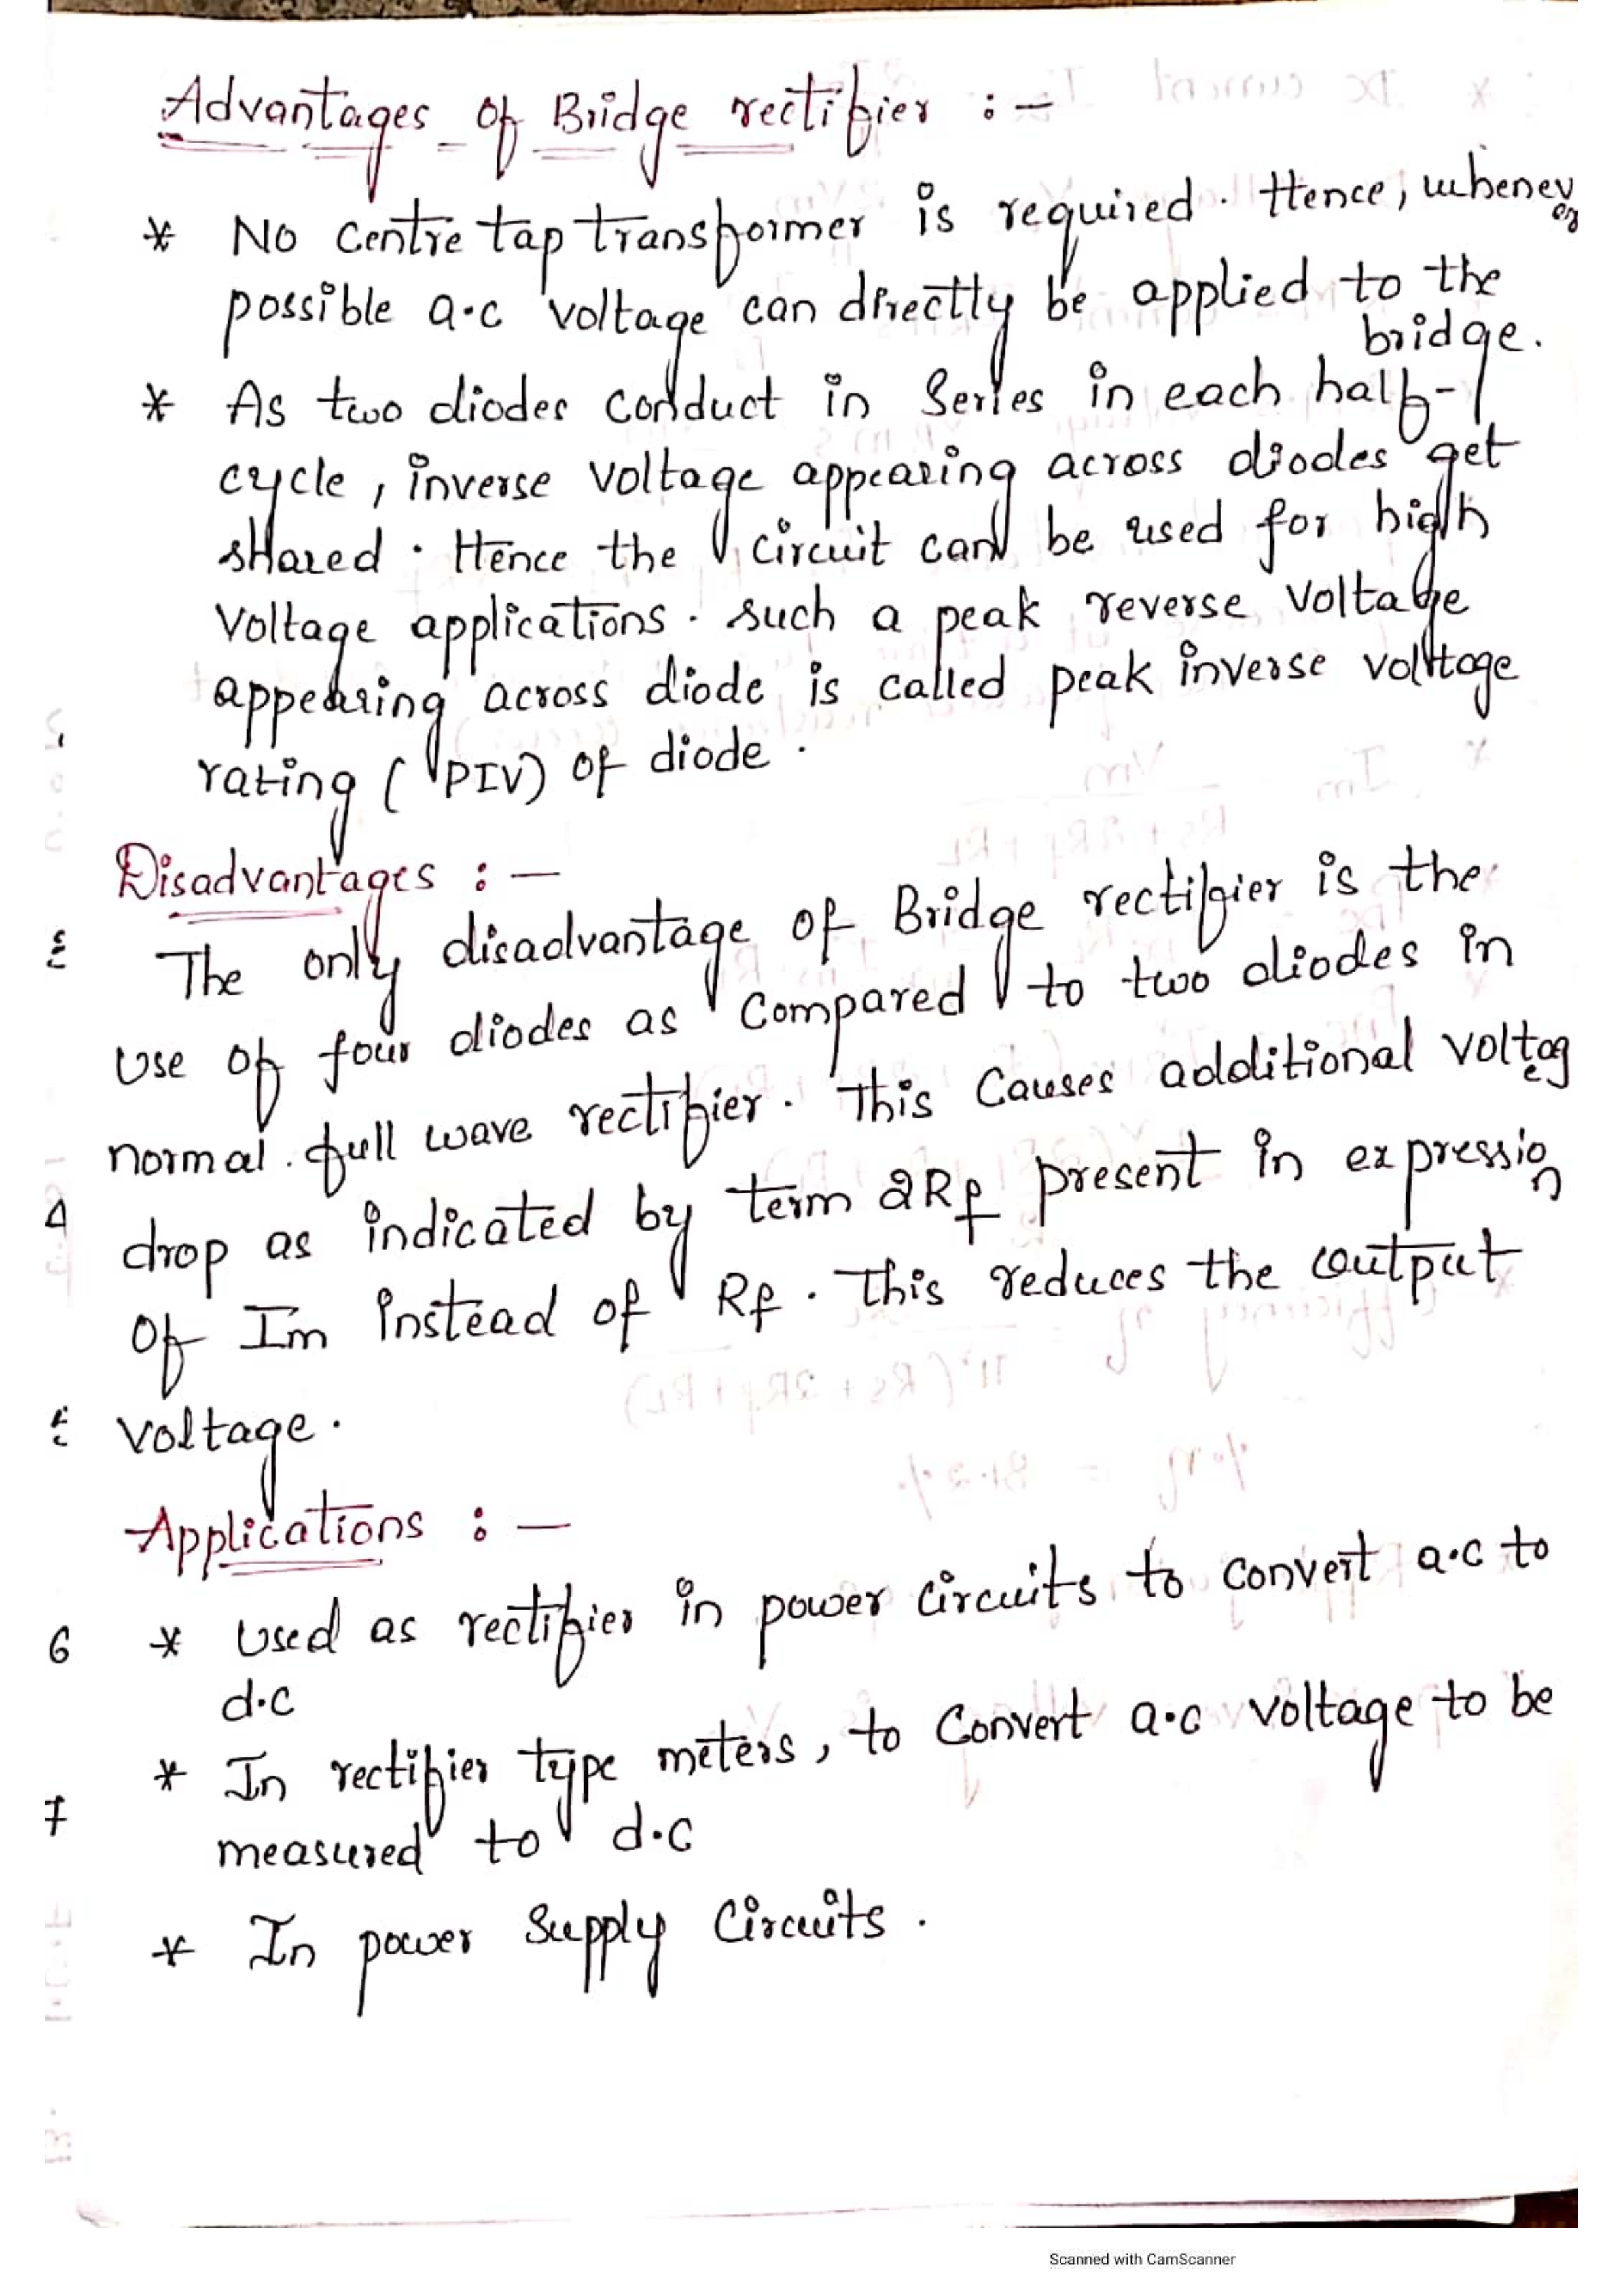 Advantages of Bridge rectifier :-
* No centre tap transformer is required. Hence, whenever
possible a.c voltage can directly be applied to the
bridge.
* As two diodes conduct in Series in each half-
cycle, inverse voltage appearing across diodes get
shared. Hence the circuit can be used for high
Voltage applications. such a peak reverse voltage
appearing across diode is called peak inverse voltage
rating (PIV) of diode.
Disadvantages :-
The only disadvantage of Bridge rectifier is the
use of four diodes as compared to two diodes in
normal full wave rectifier. This causes additional voltage
drop as indicated by term 2Rf present in expression
of Im instead of Rf. This reduces the output
voltage.
Applications :-
6 * Used as rectifier in power circuits to convert a.c to
d.c
* In rectifier type meters, to convert a.c voltage to be
7
measured to d.c
* In power supply circuits.
Scanned with CamScanner